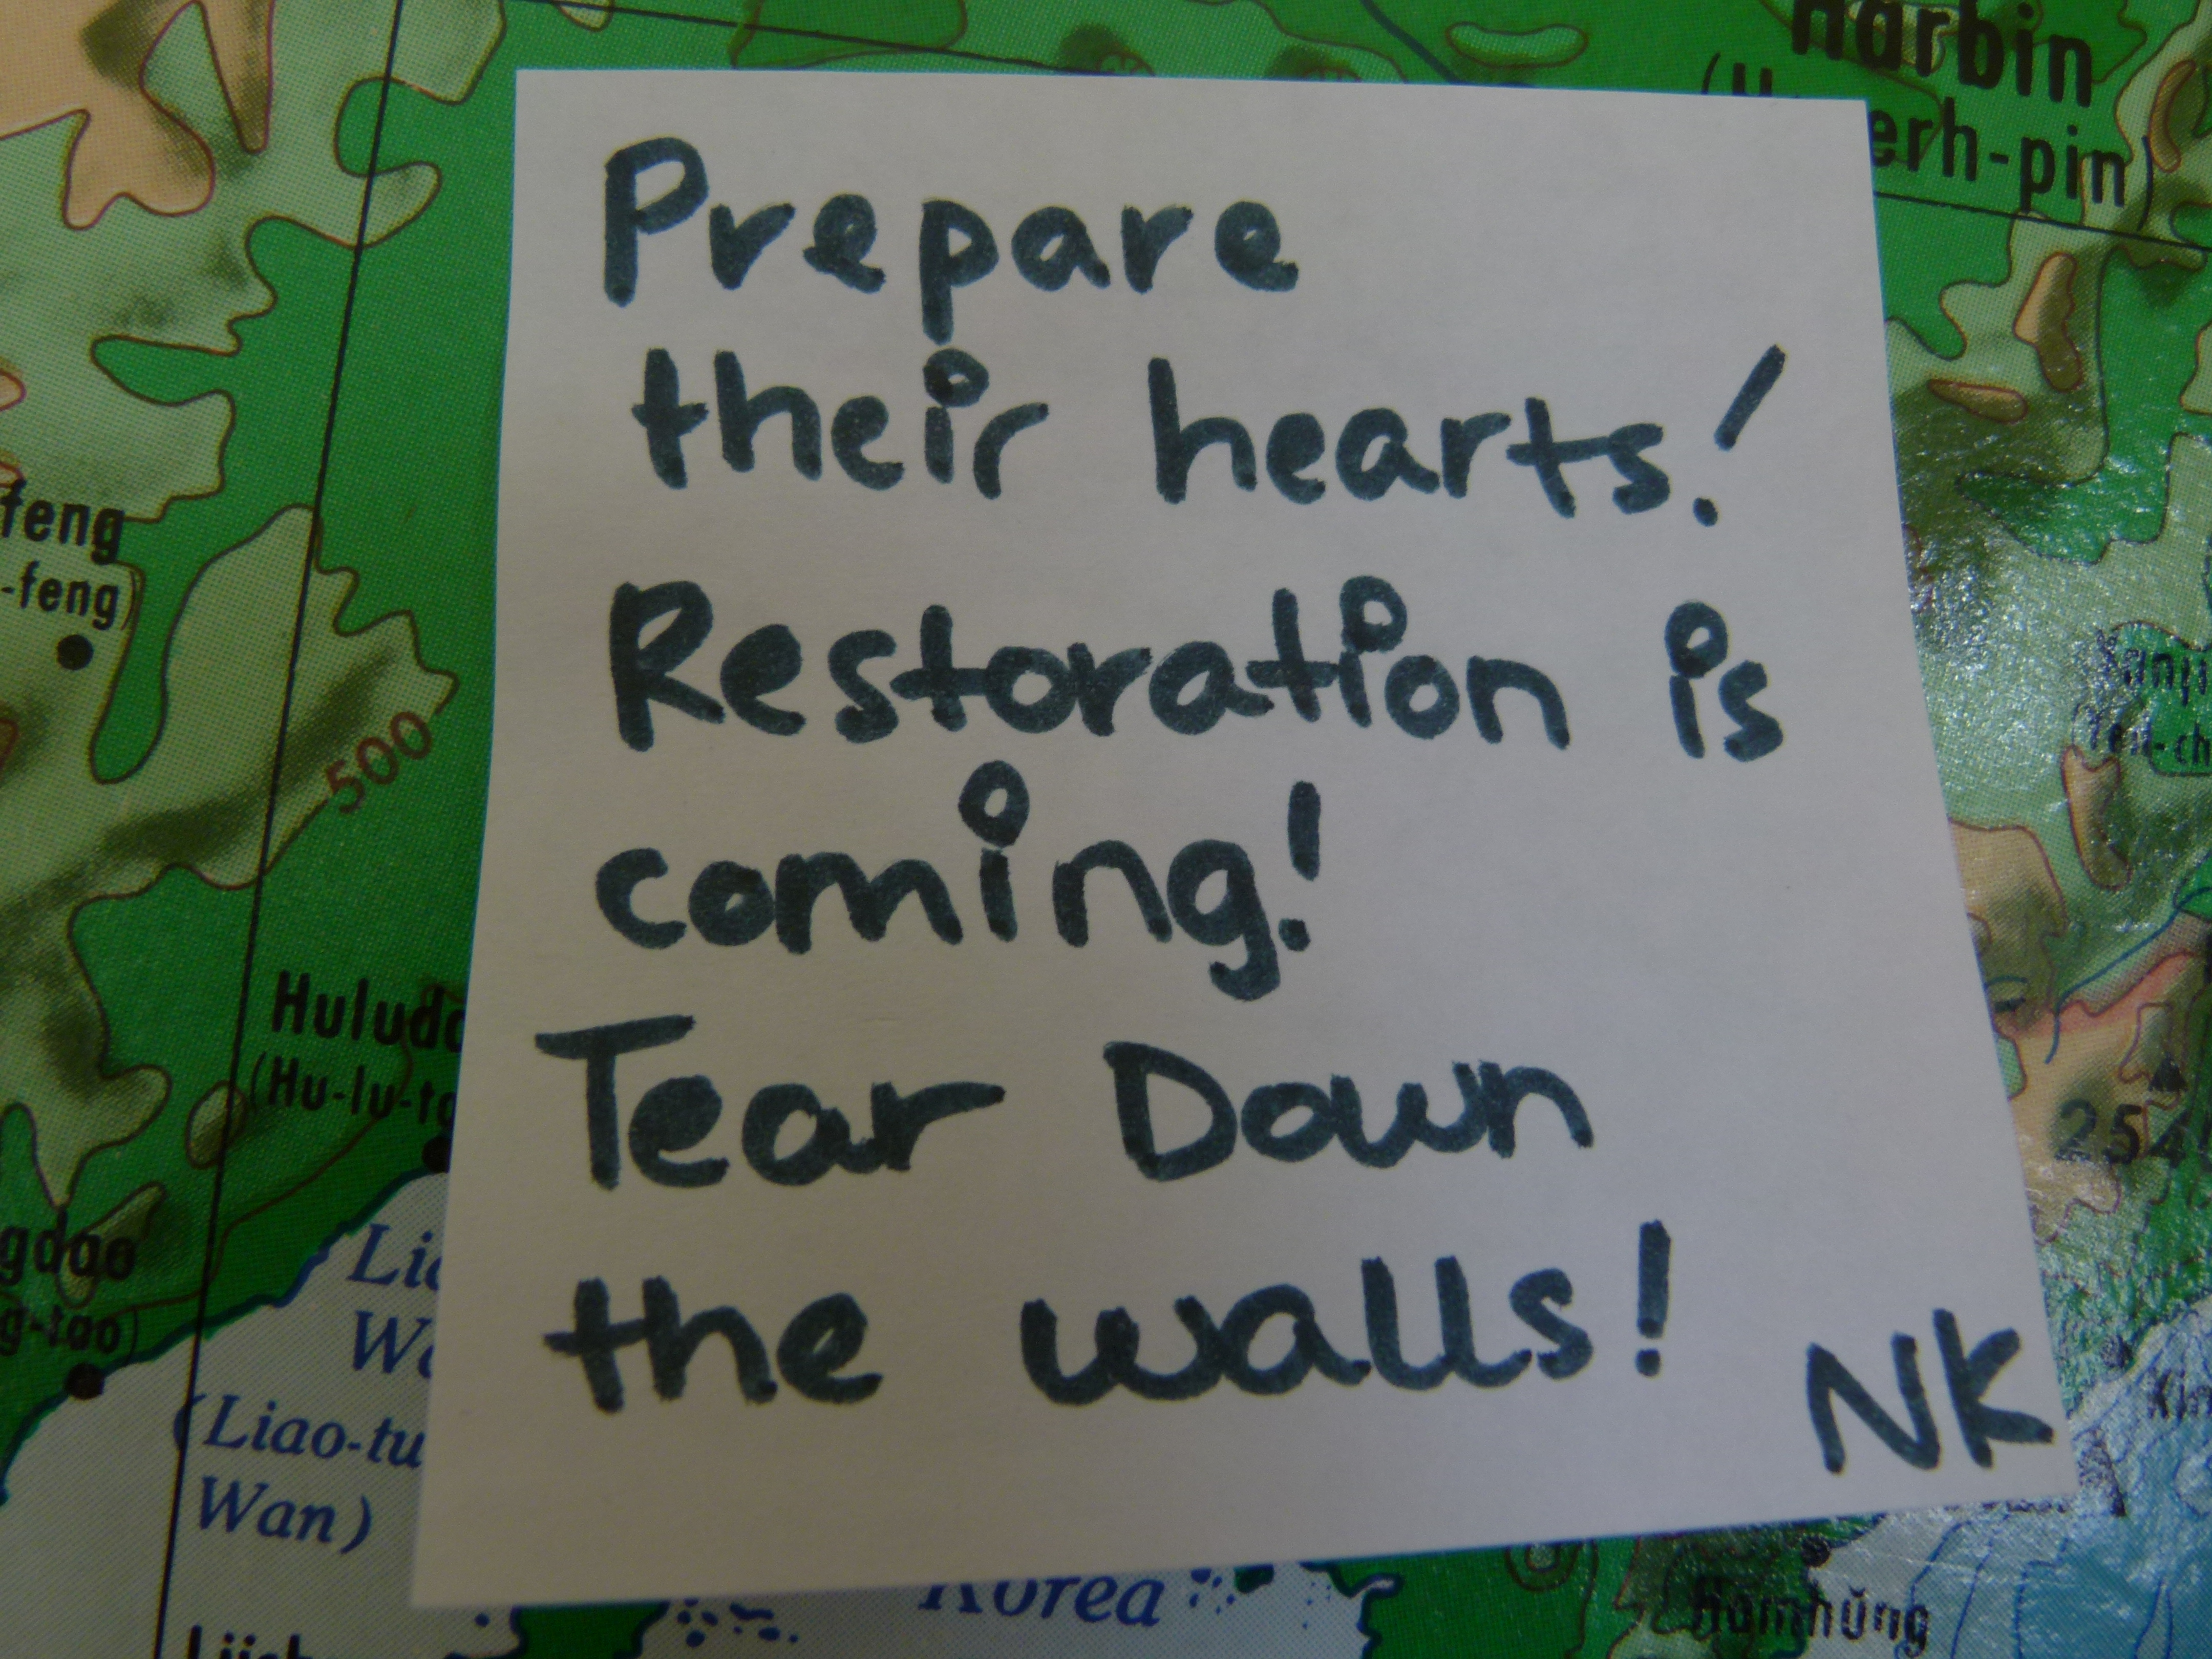 Prepare
their hearts!
Restoration is
coming!
Tear Down
the walls!
NK
Harbin
erh-pin)
feng
-feng)
500
Hulud
(Hu-lu-t
gdao
g-tao)
Li
W
(Liao-tu
Wan)
254
Korea
Hamhŭng